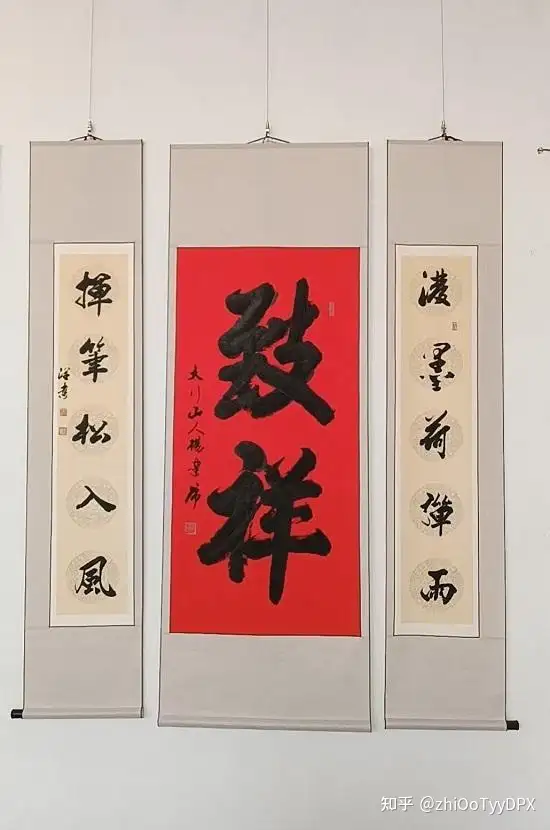 潑墨荷彈雨
致祥
大川山人楊
揮筆松入風
知乎 @zhiOoTyyDPX